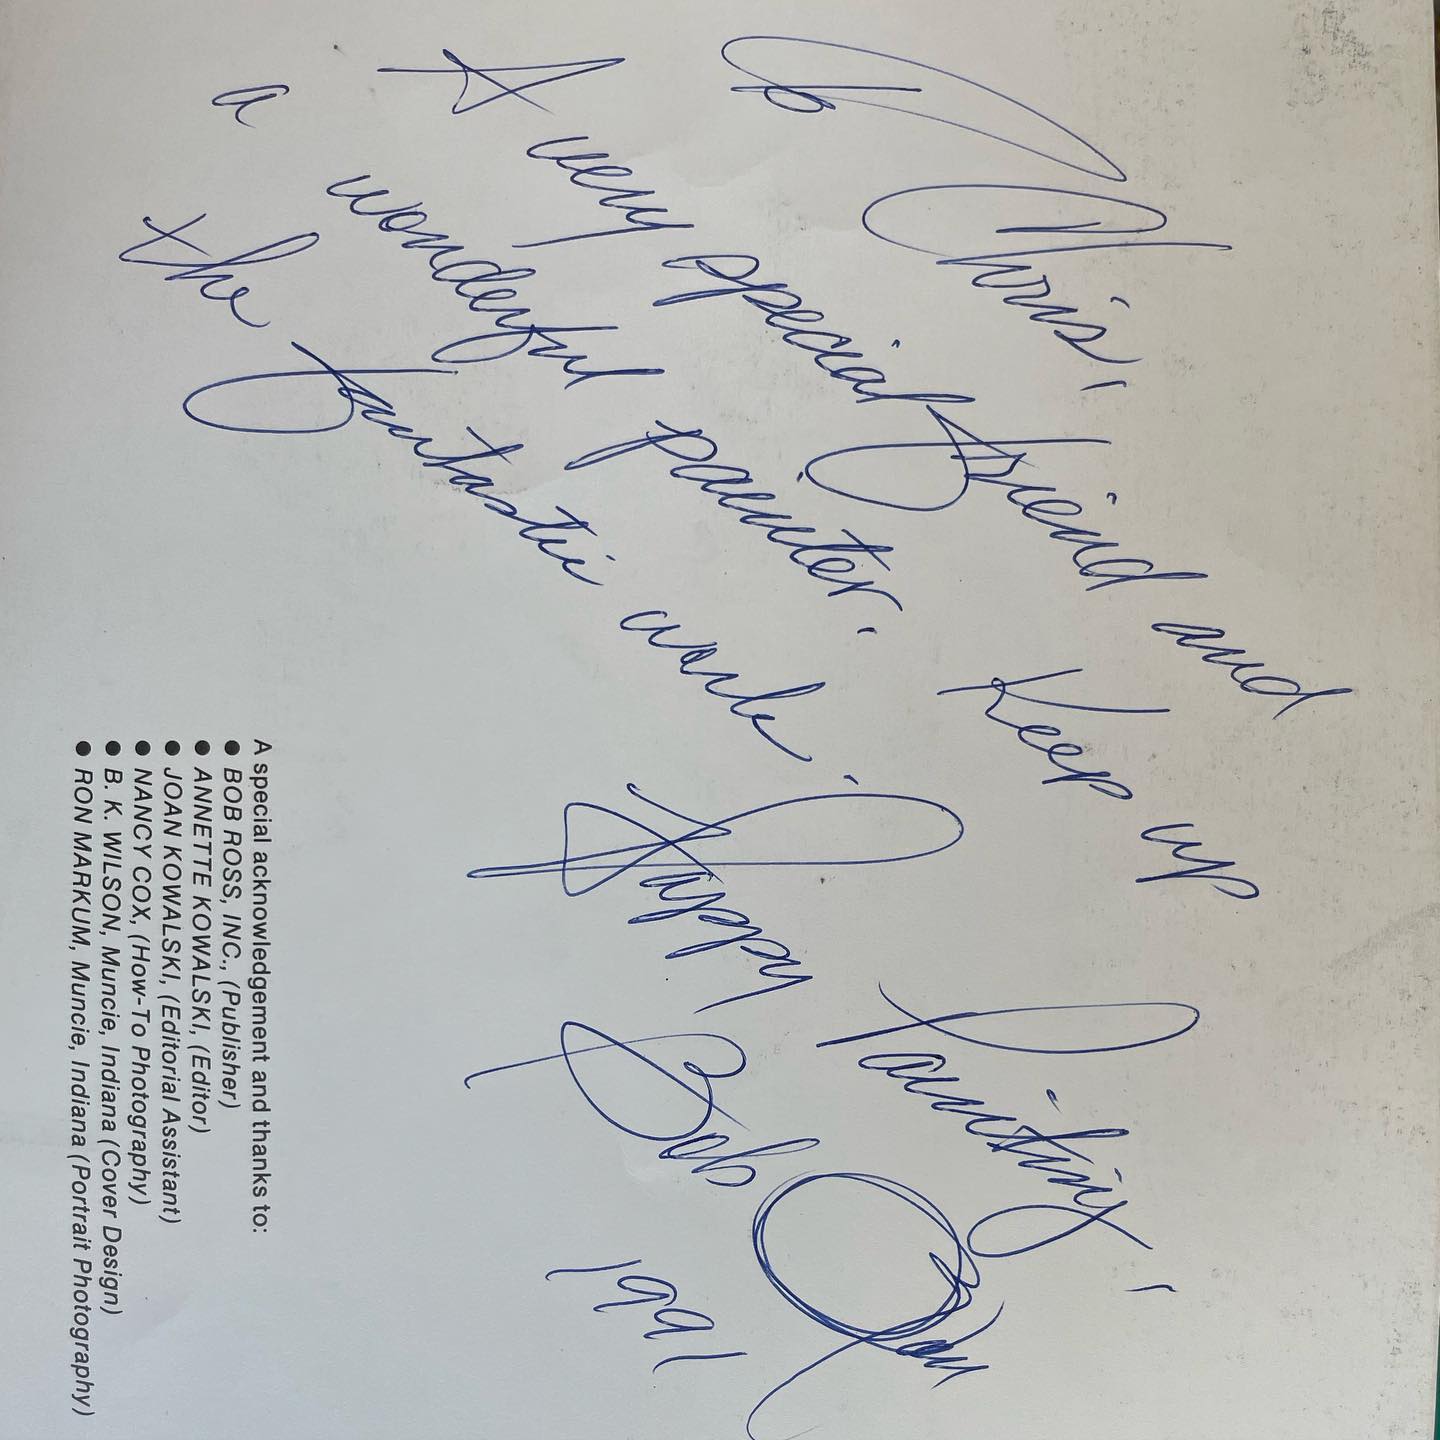 To Chris,
A very special friend and
a wonderful painter. Keep up
the fantastic work.
Happy Painting,
Bob Ross
1991
A special acknowledgement and thanks to:
● BOB ROSS, INC., (Publisher)
● ANNETTE KOWALSKI, (Editor)
● JOAN KOWALSKI, (Editorial Assistant)
● NANCY COX, (How-To Photography)
● B. K. WILSON, Muncie, Indiana (Cover Design)
● RON MARKUM, Muncie, Indiana (Portrait Photography)